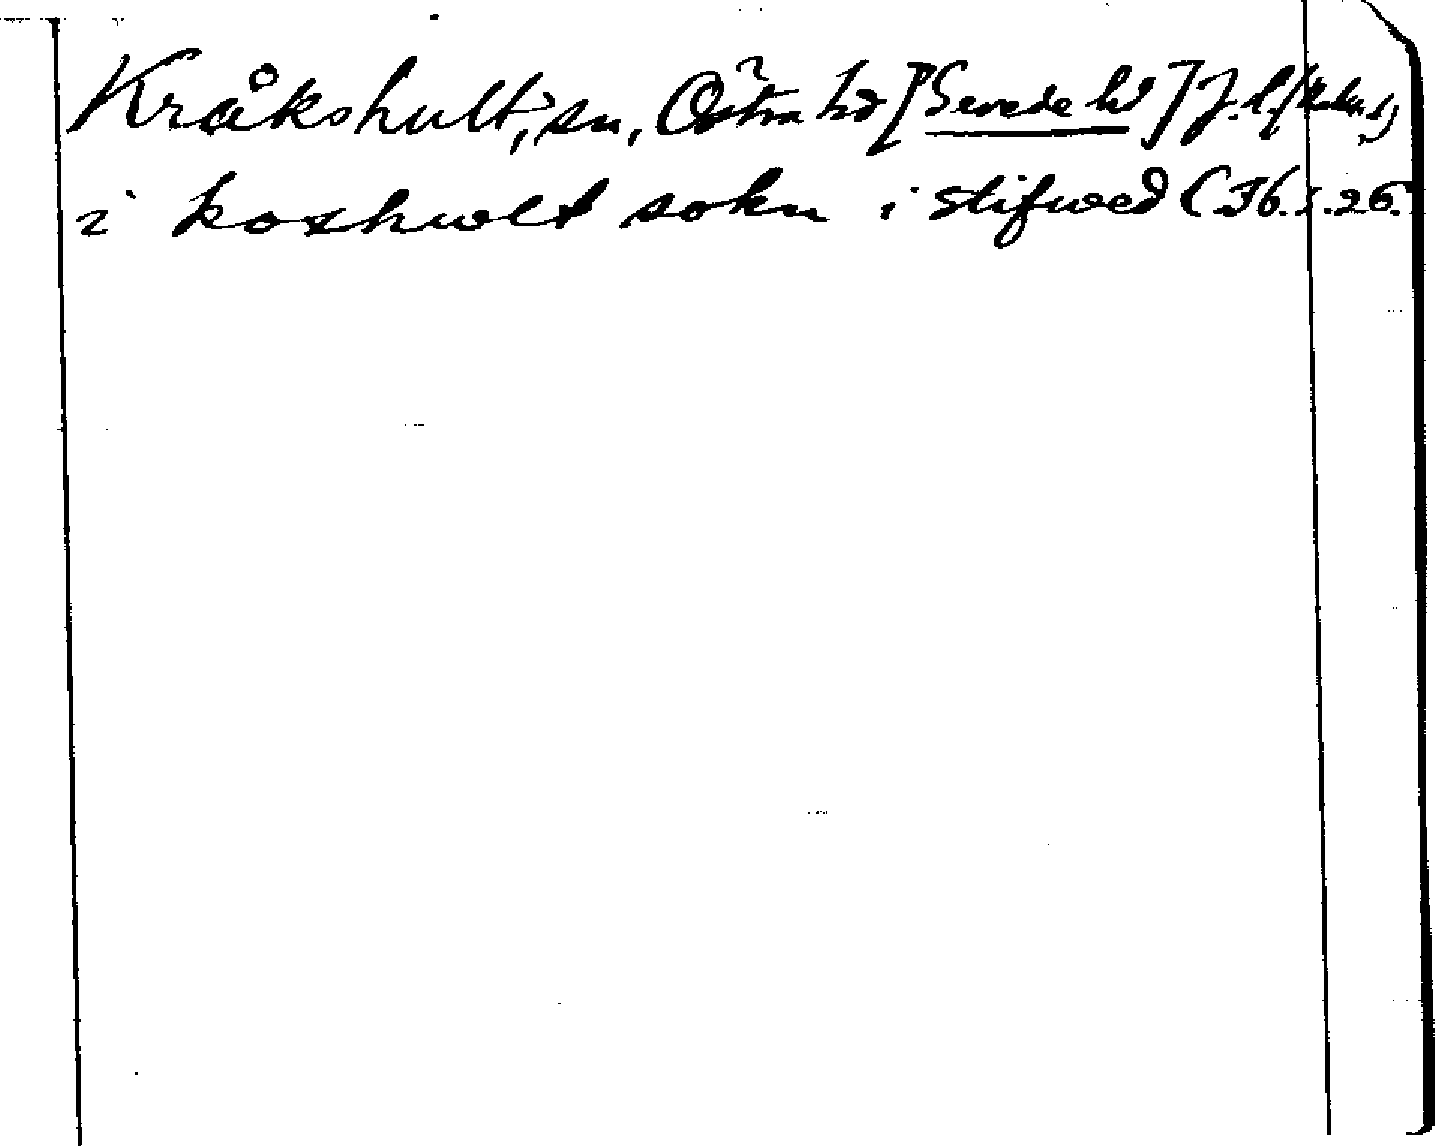 Kråkshult, sn, Östra hd [Sevede hd] J. l. (Kalm. l.)
i koxhwlt sokn i stifwed (36.1.26.